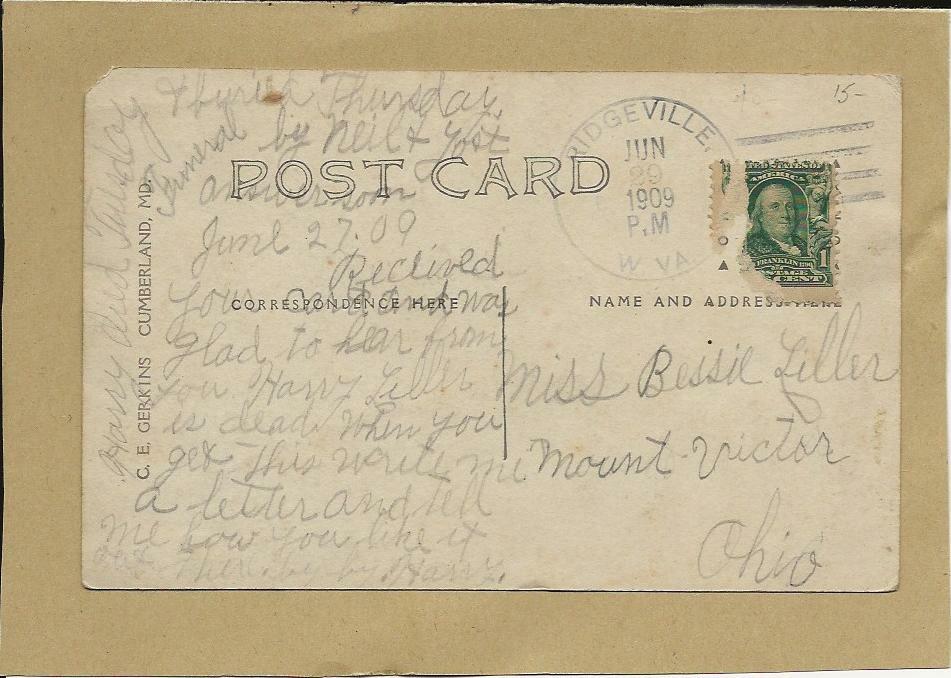 & buried Thursday
Funeral by Neil & Yost
POST CARD
answer soon
June 27.09
Received
CORRESPONDENCE HERE
your card and was
glad to hear from
you Harry Liller
is dead When you
get this write me
a letter and tell
me how you like it
out there. by by. Harry.
Harry died Tuesday
C. E. GERKINS CUMBERLAND, MD.
RIDGEVILLE,
JUN
29
1909
P.M
W VA
15-
AMERICA
FRANKLIN
1
CENT
NAME AND ADDRESS HERE
Miss Bessie Liller
Mount Victor
Ohio